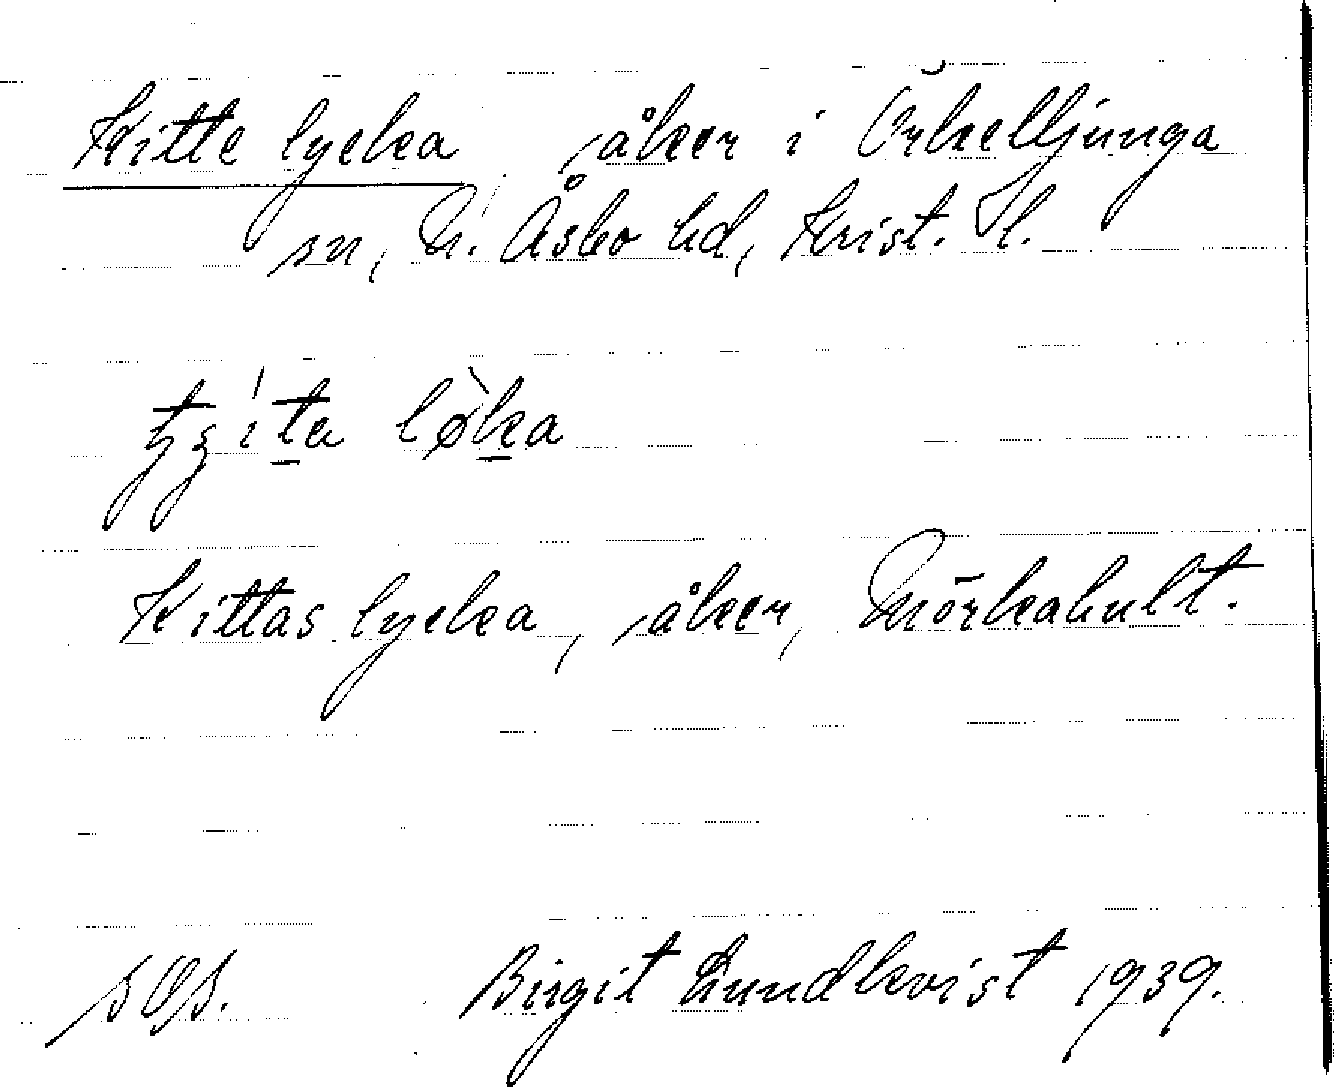 Kitte lycka, åker i Örkelljunga
sn, N. Åsbo hd, Krist. l.
tʒíta lø̀ka
Kittas lycka, åker, Mörkahult.
sOs. Birgit Lundkvist 1939.